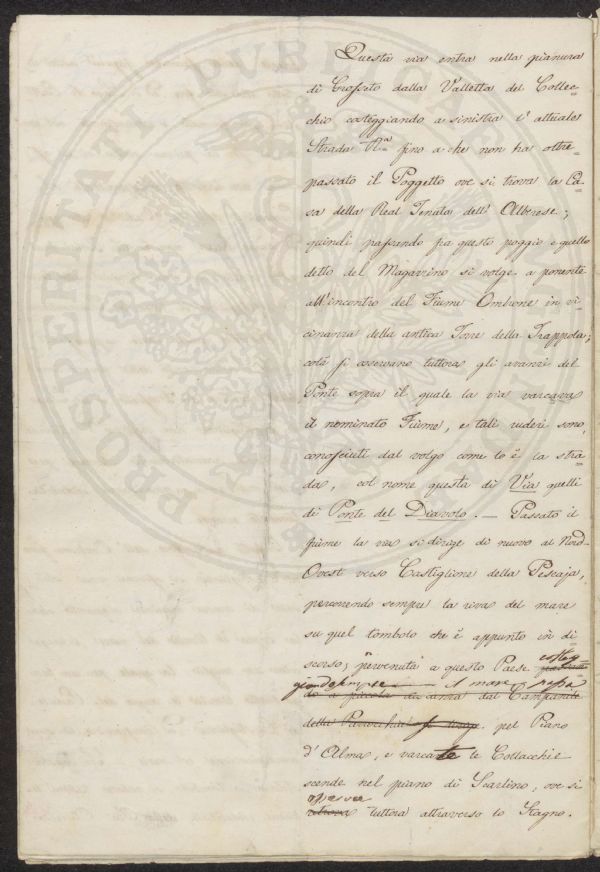 Questa via entra nella pianura
di Grosseto dalla Valletta del Collec-
chio costeggiando a sinistra l'attuale
Strada R.a fino a che non ha oltre-
passato il Poggetto ove si trova la Ca-
sa della Real Tenuta dell'Alberese;
quindi passando fra questo poggio e quello
detto del Magazzino si volge a ponente
all'incontro del Fiume Ombrone in vi-
cinanza della antica Torre della Trappola;
colà si osservano tuttora gli avanzi del
Ponte sopra il quale la via varcava
il nominato Fiume, e tali ruderi sono
conosciuti dal volgo come lo è la stra-
da, col nome questa di Via quelli
di Ponte del Diavolo. — Passato il
fiume la via si dirige di nuovo al Nord-
Ovest verso Castiglione della Pescaja,
percorrendo sempre la riva del mare
su quel tombolo che è appunto in di-
scorso; pervenuta a questo Paese costeg
giando il mare passa
do a piccola distanza dal Campanile
della si volge pel Piano
d'Alma, e varcate le Collacchie
scende nel piano di Scarlino, ove si
osserva
ritrova tuttora attraverso lo Stagno.
PROSPERITATI PUBLICAE